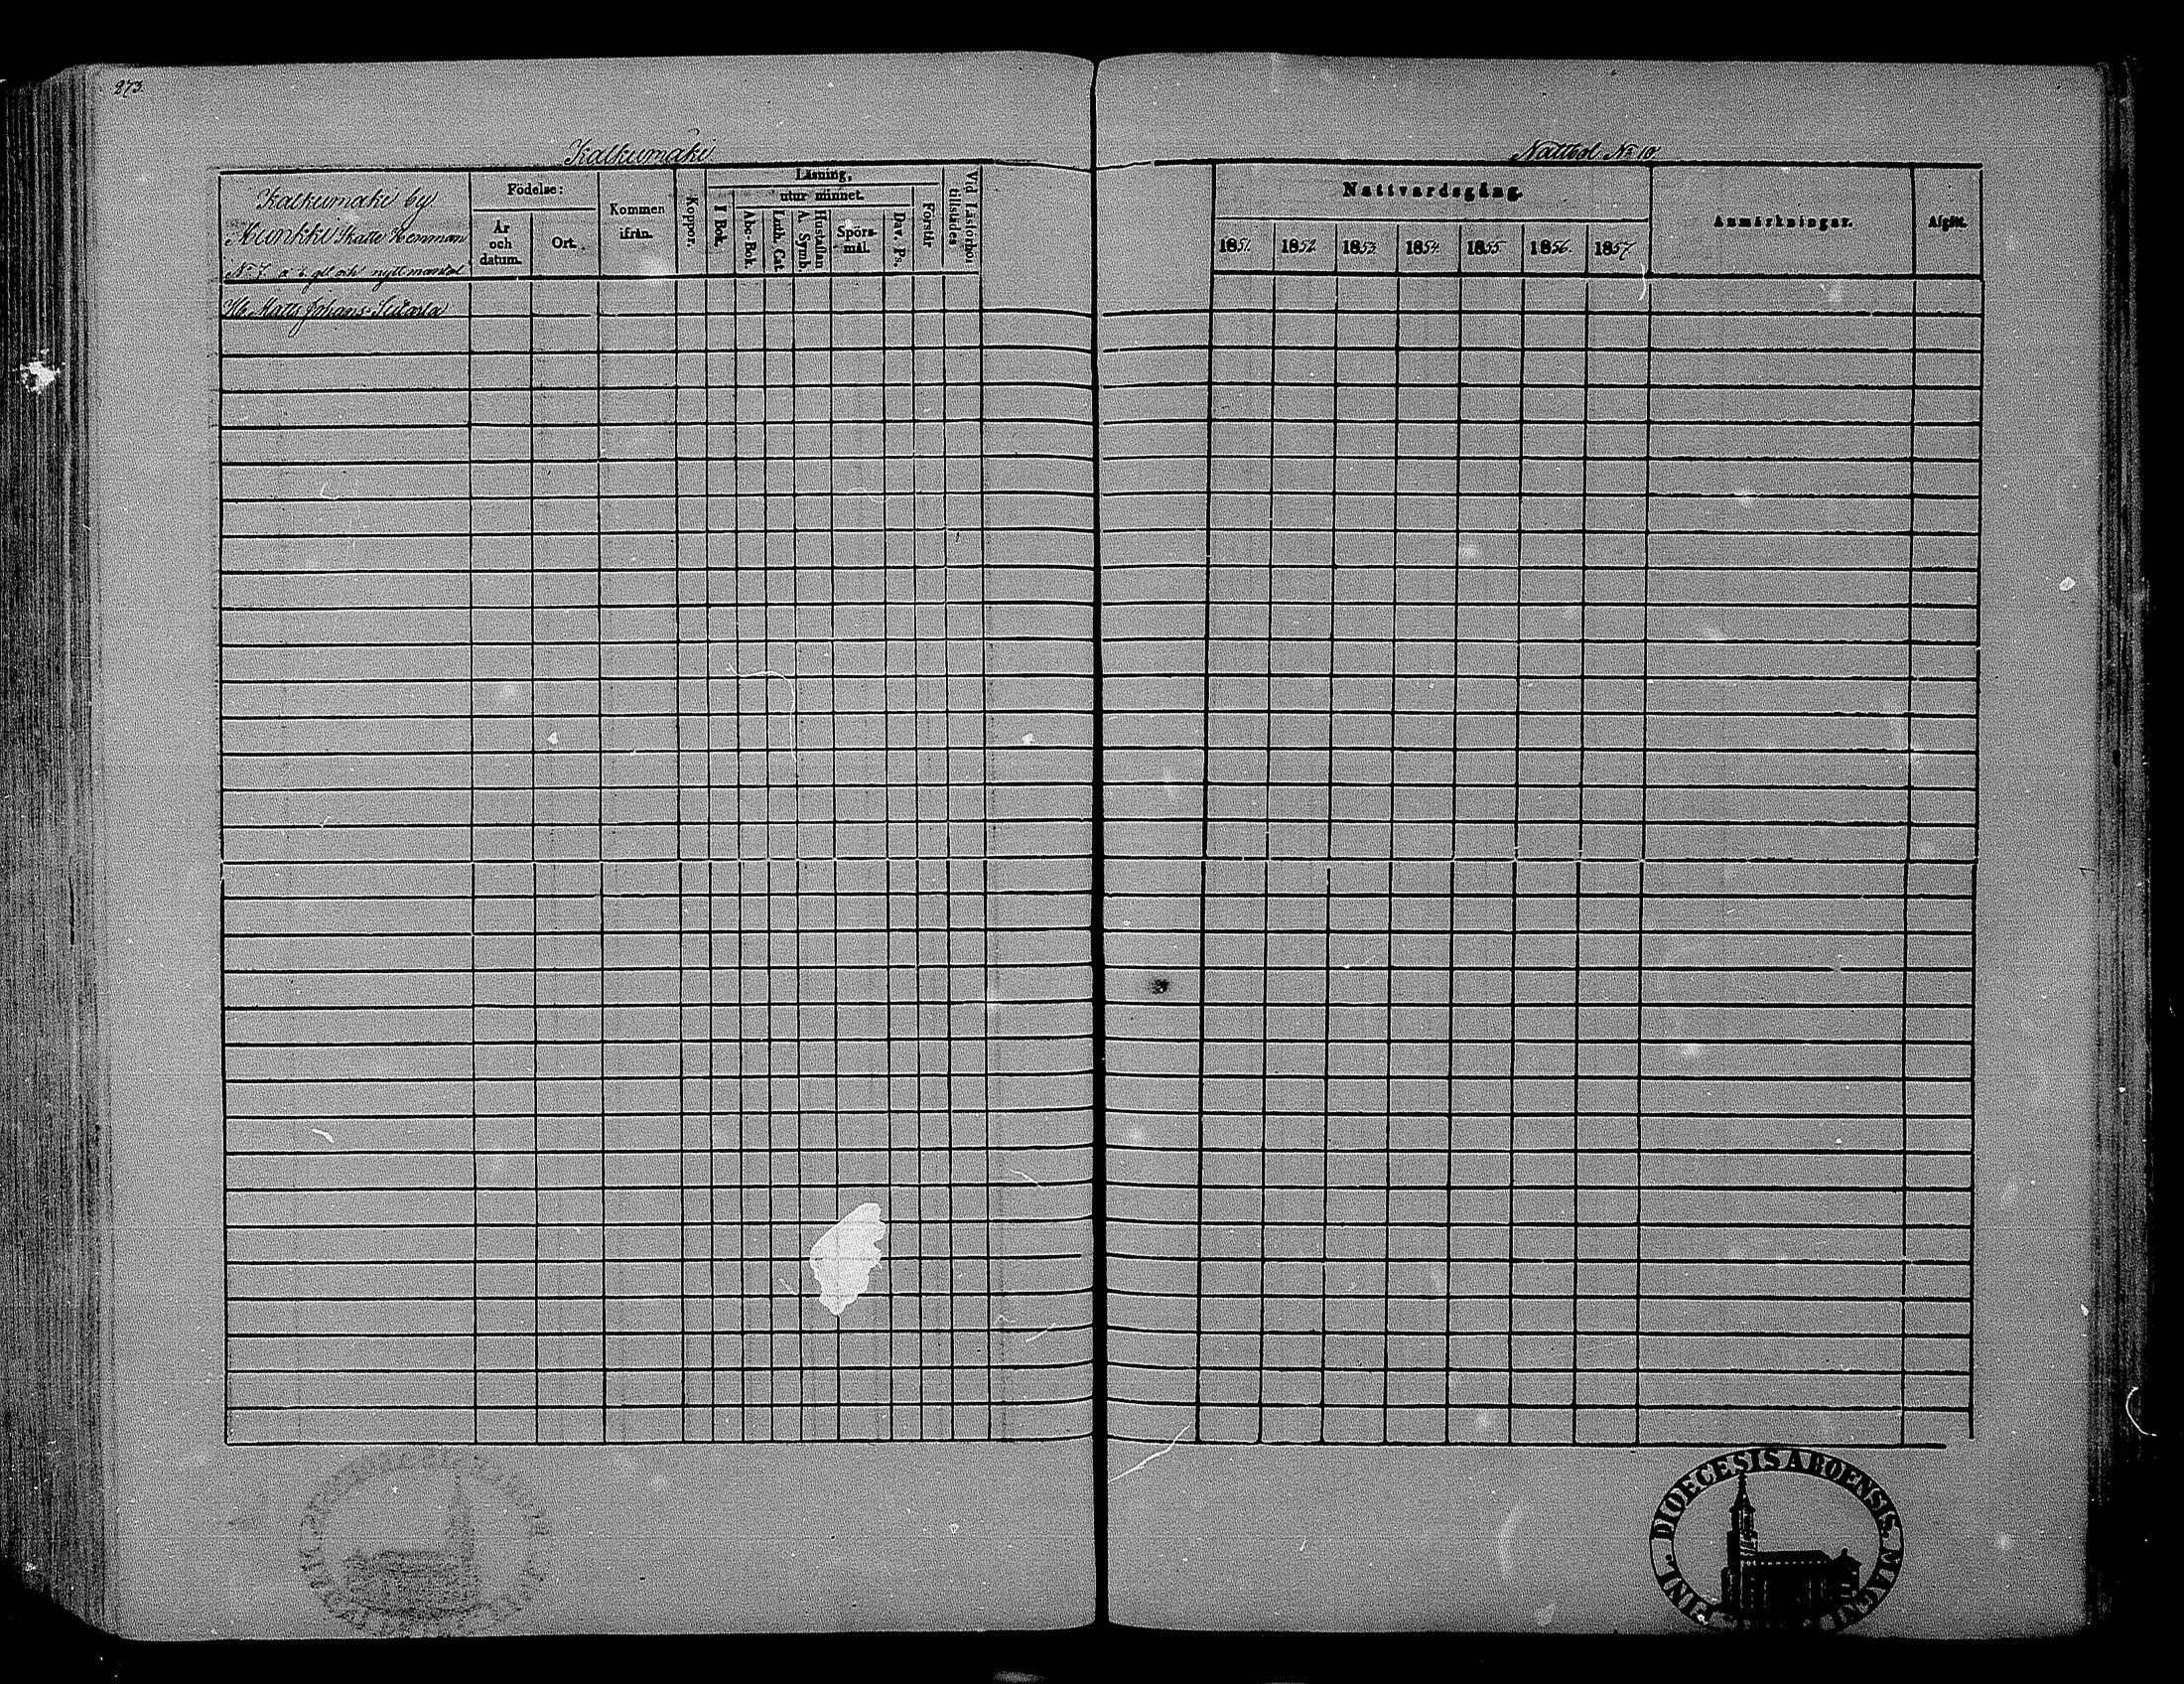 273.
Kalkumaki
Nattvol No 10
Kalkumaki by
Munkki Skatte Hemman
No 7. a 1/6 gl och nytt mantal
Födelse:
År
och
datum.
Ort.
Kommen
ifrån.
Koppor.
Läsning,
utur minnet.
I Bok.
Abc-Bok.
Luth. Cat.
Hustaflan
A. Symb.
Spörs-
mål.
Dav. Ps.
Förstår
Vid Läsförhör
tillstädes
Nattvardsgång.
1851.
1852
1853
1854
1855
1856.
1857
Anmärkningar.
Afgått.
Matts Johans
DIOECESIS ABOENSIS. MAGNI FINL.